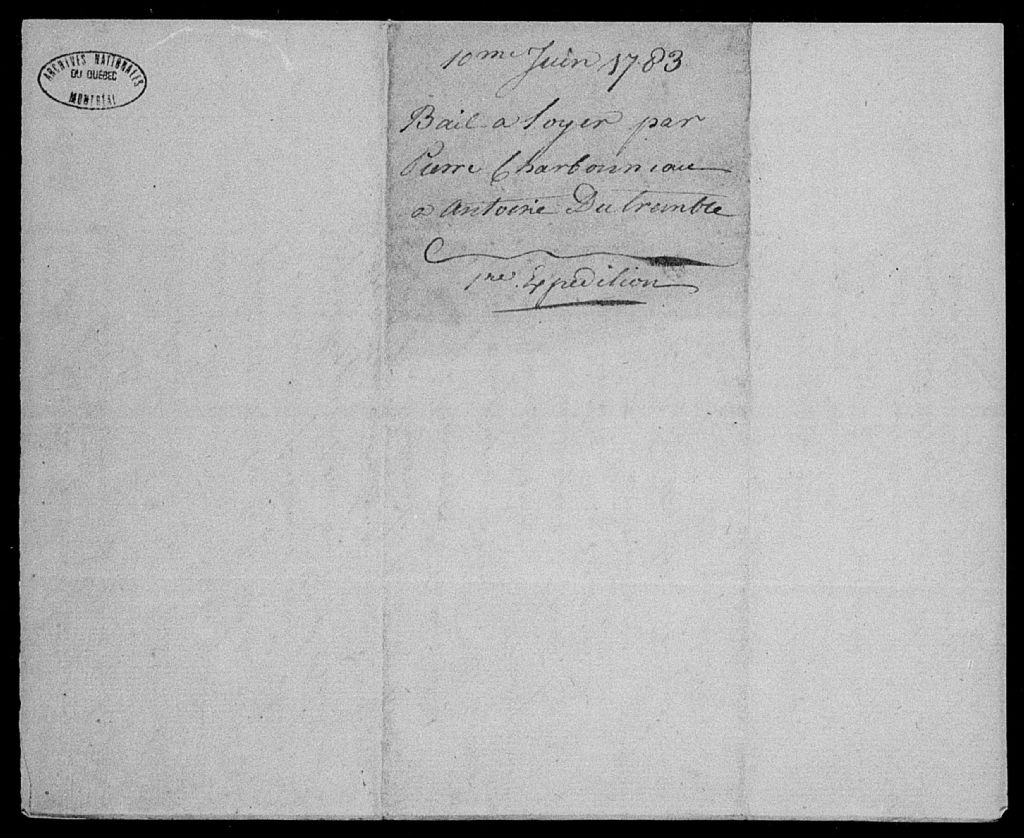 ARCHIVES NATIONALES
DU QUÉBEC
MONTRÉAL
10me Juin 1783
Bail a loyer par
Pierre Charbonneau
a Antoine Dutremble
1re Expedition